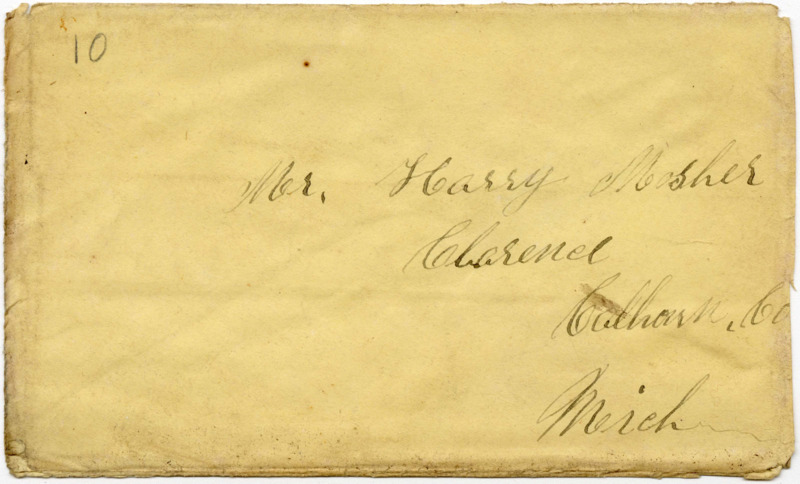 10
Mr. Harry Mosher
Clarence
Calhoun, Co
Mich